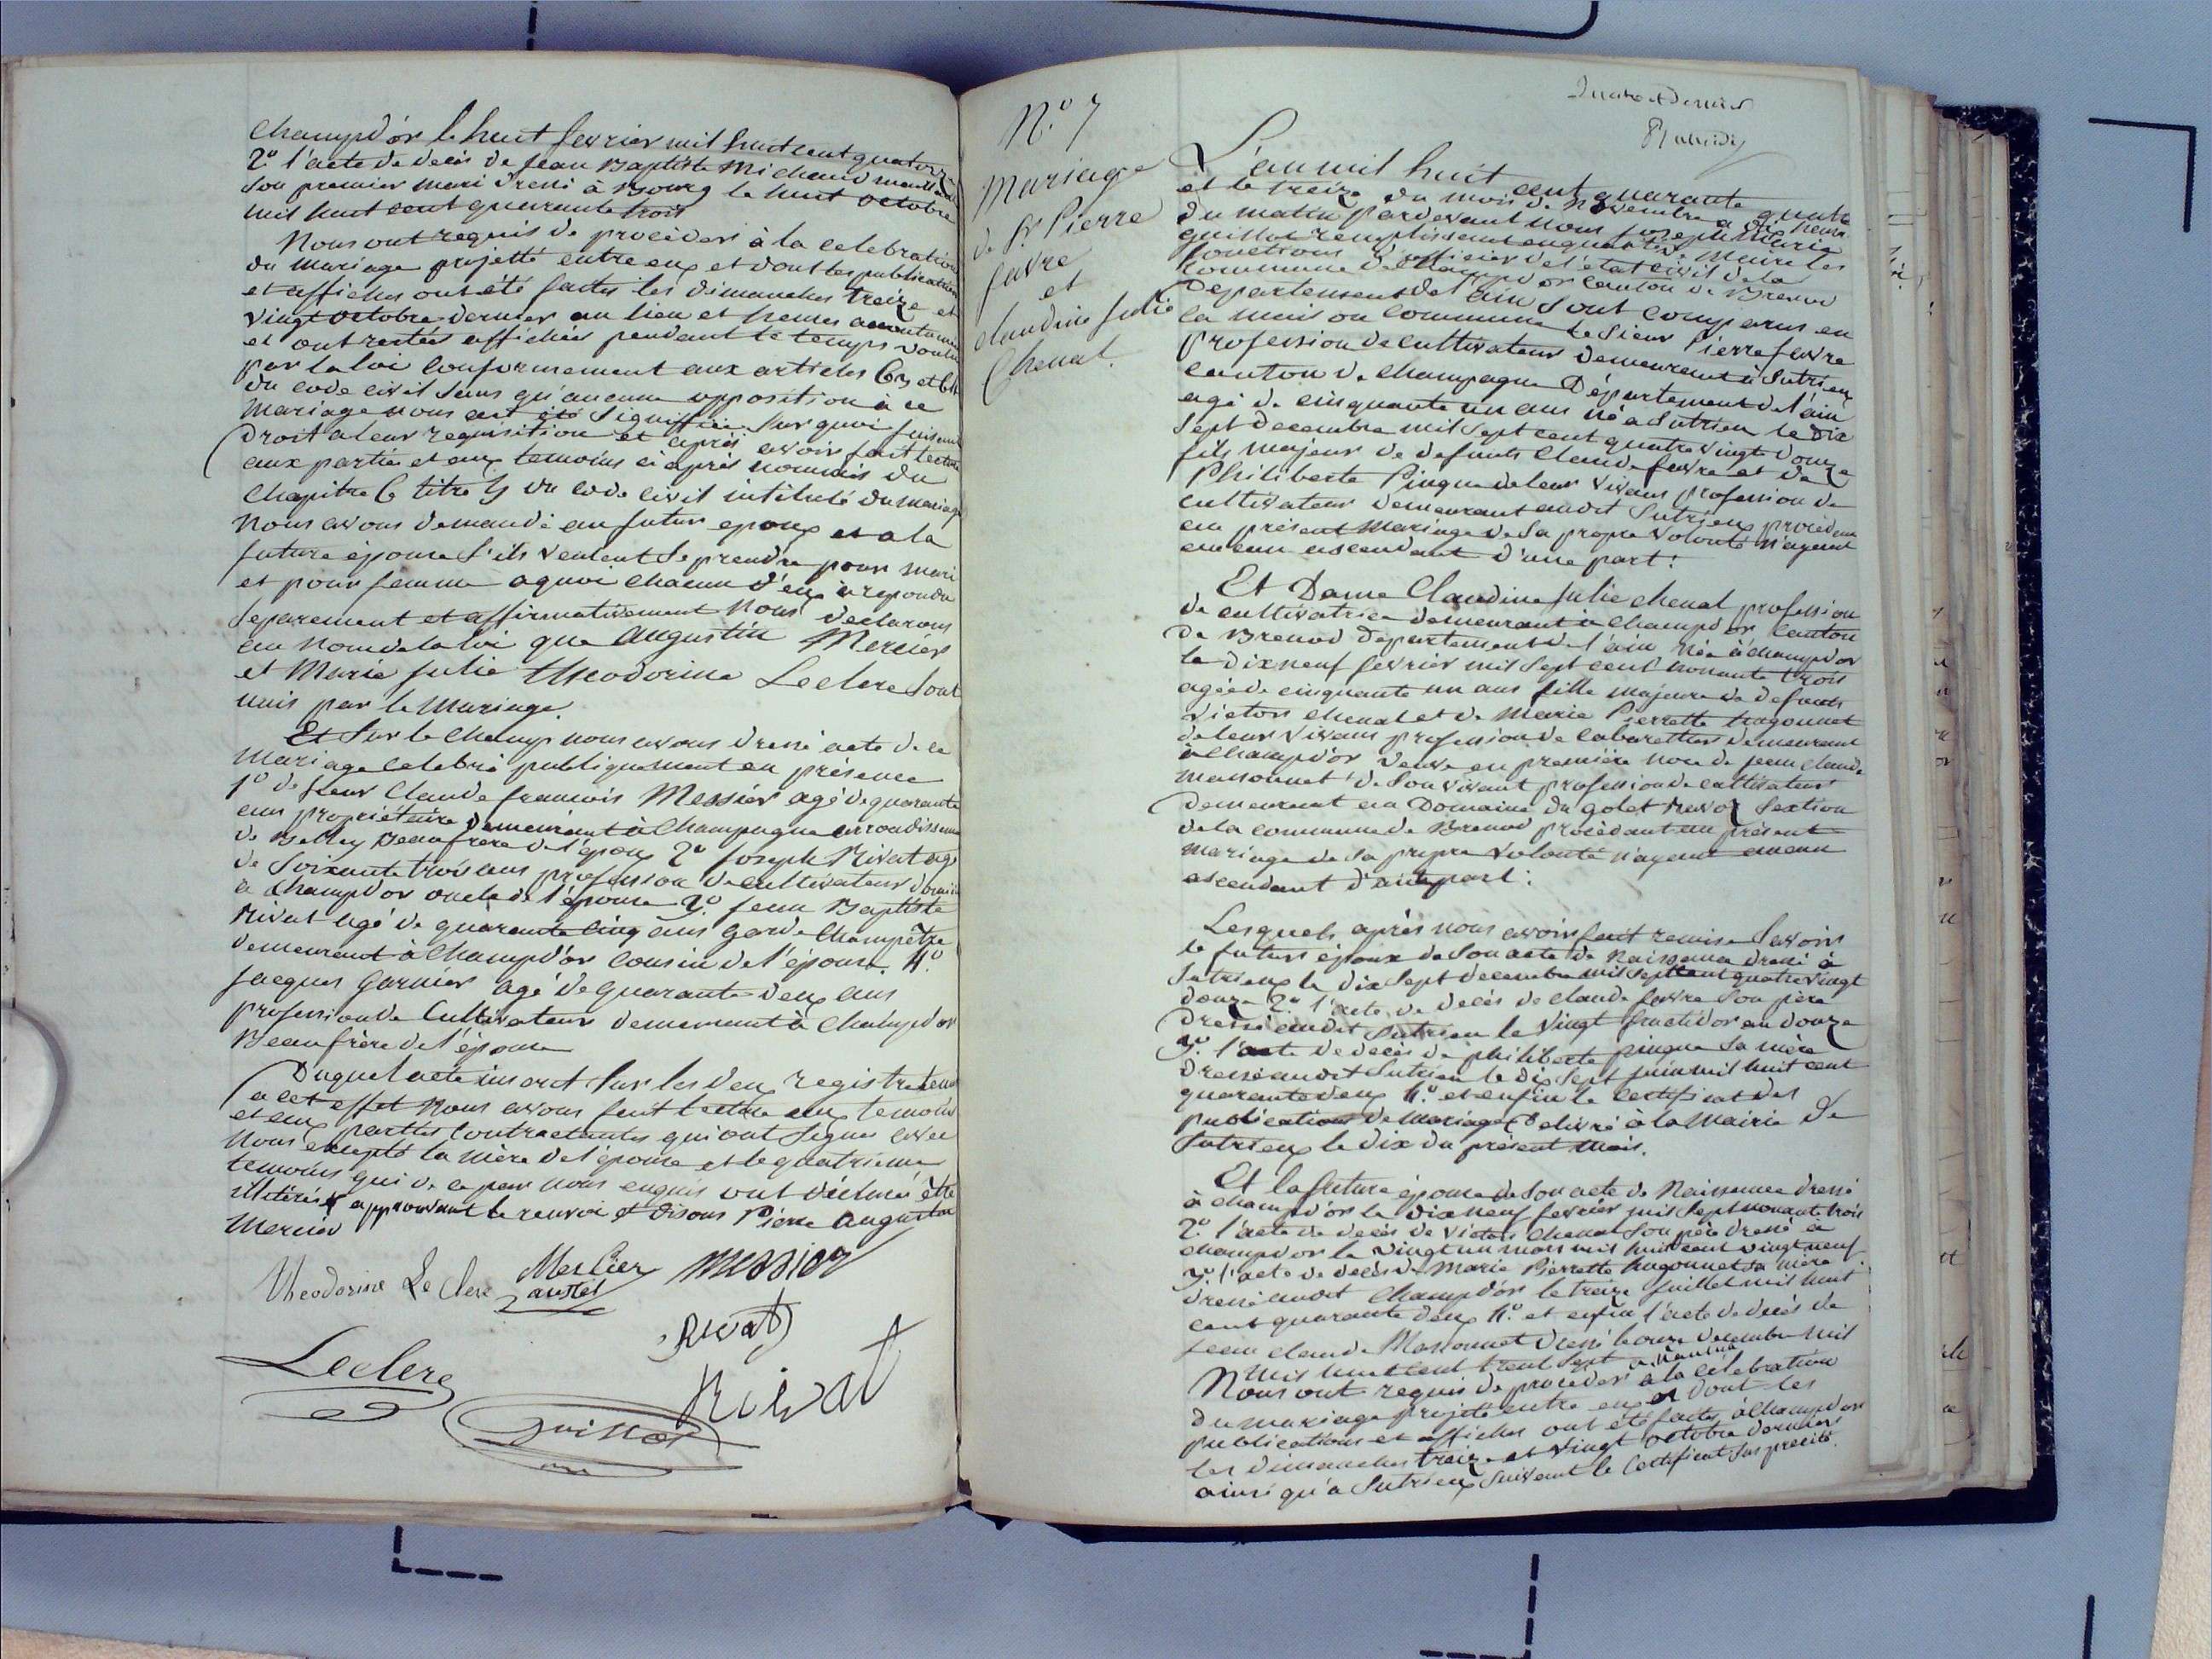 Champd'or le huit fevrier mil huit cent quatorze
2º l'acte de decès de Jean Baptiste Michaud
son premier mari dressé à Bourg le huit octobre
mil huit cent quarante trois
Nous ont requis de procéder à la celebration
du mariage projetté entre eux et dont les publications
et affiches ont été faites les dimanches treize et
vingt octobre dernier au lieu et heures accoutumés
et ont restées affichées pendant le temps voulu
par la loi conformement aux articles 63 et 64
du code civil sans qu'aucune opposition à ce
mariage nous ait été signiffiée. Sur quoi faisant
droit a leur requisition et après avoir fait lecture
aux parties et aux temoins ci après nommés du
chapitre 6 titre 5 du code civil intitulé du mariage
Nous avons demandé au futur epoux et a la
future épouse s'ils veulent se prendre pour mari
et pour femme a quoi chacun d'eux à repondu
separement et affirmativement Nous declarons
au nom de la loi que Augustin Mercier
et Marie Julie Theodorine Leclerc sont
unis par le mariage.
Et sur le champ nous avons dressé acte de ce
mariage celebré publiquement en présence
1º de sieur Claude francois Messier agé de quarante
ans propriétaire demeurant à Champagne arrondissement
de Belley Beaufrère de l'époux 2º Joseph Rivat agé
de soixante trois ans profession de cultivateur
a Champdor oncle de l'épouse 3º. Jean Baptiste
Rivat agé de quarante cinq ans garde champêtre
demeurant à Champd'or cousin de l'épouse. 4º.
Jacques Garnier agé de quarante deux ans
profession de Cultivateur demeurant à Champdor
Beaufrère de l'épouse
Duquel acte inserit sur les deux registres tenus
a cet effet Nous avons fait lecture aux temoins
et aux parties contractantes qui ont signés avec
nous excepté la mère de l'épouse et le quatrieme
temoins qui de ce par nous enquis ont déclaré être
illitérés approuvant le renvoi et disons Pierre Augustin
Mercier
Theodorine Le Clerc Mercier Messier
Rivat
Leclerc
Rivat
Guillot
Nº 7
Mariage
de Sr Pierre
favre
et
Claudine Julie
Chenal.
L'an mil huit cent quarante quatre
et le treize du mois de Novembre a dix heures
du matin pardevant nous Joseph Marie
Guillot remplissant en qualité de Maire les
fonctions d'officier de l'état civil de la
Commune de Champdor canton de Brenod
Departement de l'ain sont comparus en
la maison Commune le sieur Pierre favre
profession de cultivateur demeurant à Sutrieux
canton de Champagne Département de l'ain
agé de cinquante un ans né a Sutrieu le dix
sept decembre mil sept cent quatre vingt douze
fils majeur de defunts Claude favre et de
Philiberte Pingue de leur vivans profession de
cultivateur demeurant audit Sutrieux procédant
au présent mariage de sa propre volonté n'ayant
aucun ascendant d'une part:
Et Dame Claudine Julie chenal profession
de cultivatrice demeurant à Champdor canton
de Brenod departement de l'ain née à champdor
le dix neuf fevrier mil sept cent nonante trois
agée de cinquante un ans fille majeure de defunts
Victor chenal et de Marie Pierrette hugonnet
de leur vivans profession de cabarettier demeurant
à Champd'or veuve en première noce de Jean Claude
Massonnet de son vivant profession de cultivateur
demeurant au Domaine du golet section
de la commune de Brenod procédant au présent
mariage de sa propre volonté n'ayant aucun
ascendant d'autre part:
Lesquels après nous avoir fait remise savoir
le futur époux de son acte de Naissance dressé à
Sutrieux le dix sept decembre mil sept cent quatre vingt
douze 2º l'acte de decès de Claude favre son père
dressé audit Sutrieu le vingt fructidor an douze
3º. l'acte de decès de philiberte pingue sa mère
dressé audit Sutrieu le dix sept juin mil huit cent
quarante deux 4.º et enfin le certificat des
publications de mariage delivré à la mairie de
Sutrieux le dix du présent mois.
Et la future épouse de son acte de Naissance dressé
à champd'or le dix neuf fevrier mil sept nonante trois
2º. l'acte de decès de Victor Chenal son père dressé a
champdor le vingt un mars mil huit cent vingt neuf
3º. l'acte de decès de Marie Pierrette hugonnet sa mère
dressé audit Champd'or le treize juillet mil huit
cent quarante deux 4º. et enfin l'acte de decés de
Jean claude Massonnet dressé le onze decembre mil
mil huit cent trent sept
Nous ont requis de procéder a la célébration
du mariage projeté entre eux et dont les
publications et affiches ont été faites à Champdor
les dimanches treize et vingt octobre derniers
ainsi qu'a Sutrieux suivant le Certificat sus précité.